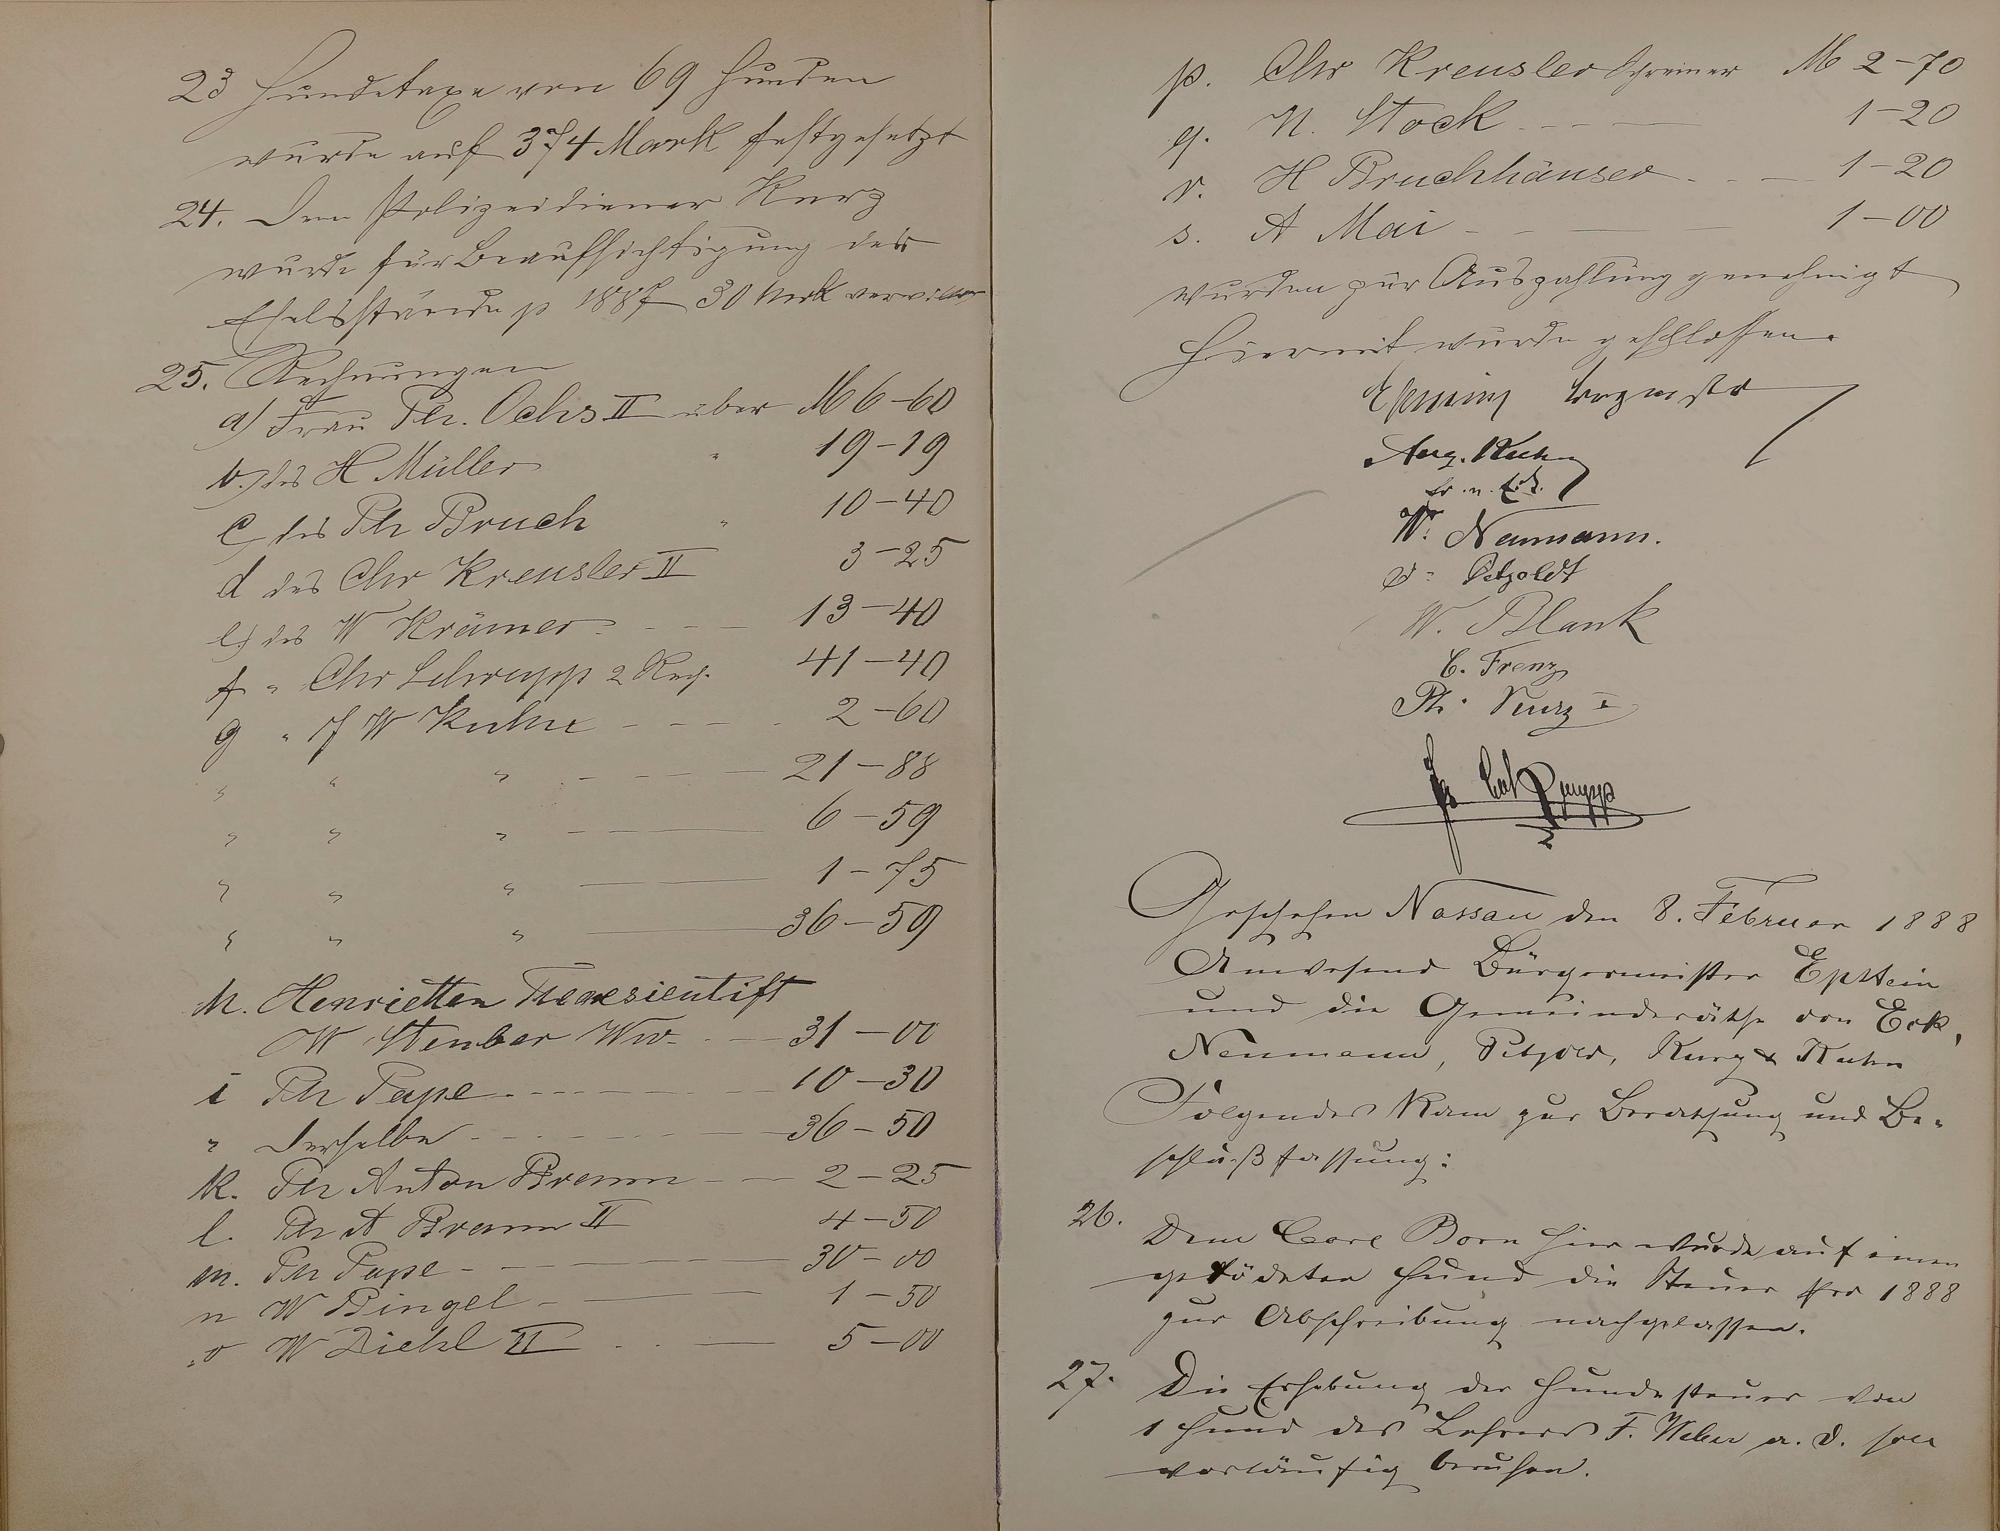 23 Hundetaxe von 69 Hunden
wurde auf 374 Mark festgesetzt
24. Dem Polizeidiener Kurz
wurde für Beaufsichtigung der
Eselsstände p 1887 30 Mark verwilligt
25. Rechnungen
a) Frau Ph. Ochs II über M 6-60
b.) des H Müller " 19-19
c des Ph Bruch " 10-40
d des Chr Kreusler II 3-25
e) des W Krämer - - - 13-40
f " Chr Schrupp 2 Rech. 41-40
g " J W Kuhn - - - - 2-60
" " " - - - - 21-88
" " " - - 6-59
" " " - 1-75
" " " - 36-59
h. Henrietten Theresienstift
W Stenber Ww. - 31-00
i Ph Pape - - - - 10-30
" Derselbe - - - - 36-50
k. Ph Anton Bremm - - 2-25
l. Ph A Bremm II 4-50
m. Ph Pape - - - 30-00
n W Bingel - - - 1-50
o W Diehl II - - - 5-00
p. Chr Kreusler Schreiner M 2-70
q. N. Stock - - - 1-20
r. H Bruchhäuser - - - 1-20
s. A Mai - - - 1-00
wurden zur Auszahlung genehmigt
Hiermit wurde geschlossen.
Epstein Bürgmstr
Aug. Kuhn
Fr. v. Eck.
W. Neumann.
Petzoldt
W. Blank
C. Frenz
Ph. Kurz I
Geschehen Nassau den 8. Februar 1888
Anwesend Bürgermeister Epstein
und die Gemeinderäthe von Eck,
Neumann, Petzold, Kurz & Kuhn
Folgendes kam zur Berathung und Be-
schlußfassung:
26. Dem Carl Born hier wurde auf einen
getödeten Hund die Steuer pro 1888
zur Abschreibung nachgelassen.
27. Die Erhebung der Hundesteuer von
1 Hund des Lehrers F. Weber a. D. soll
vorläufig beruhen.